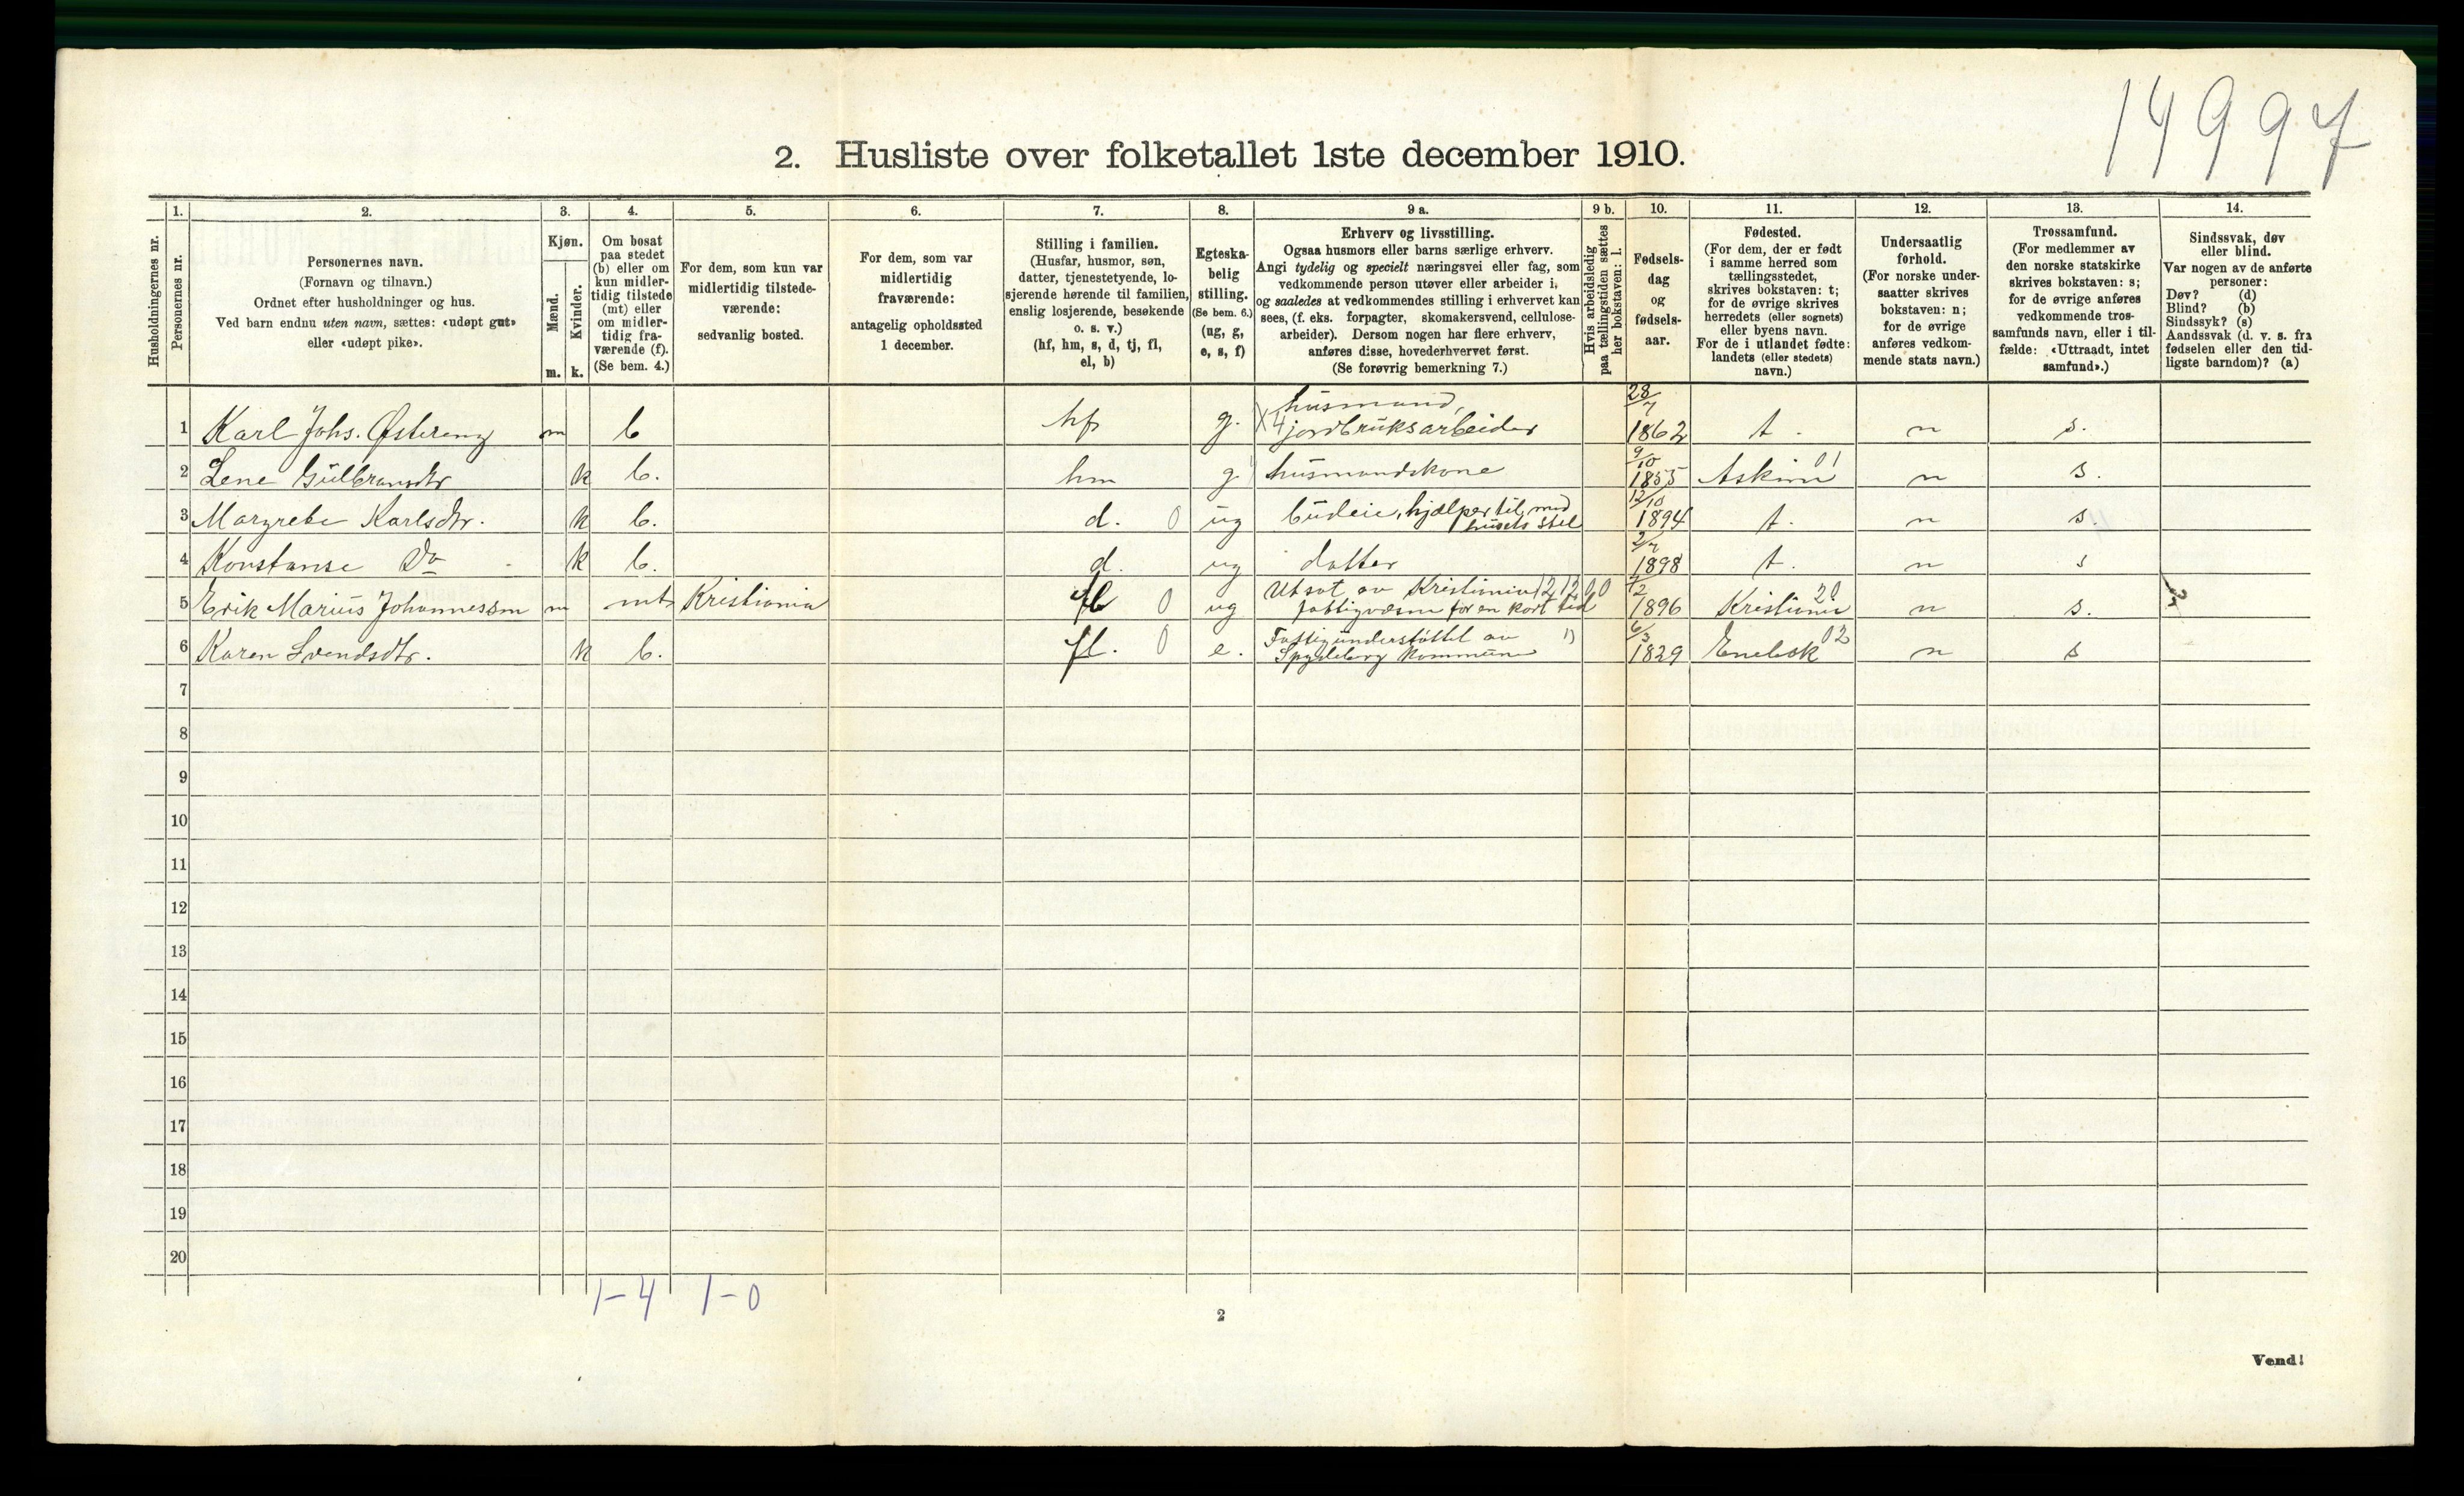 14997
2. Husliste over folketallet 1ste december 1910.
Husholdningernes nr.
1.
Personernes nr.
2.
Personernes navn.
(Fornavn og tilnavn.)
Ordnet efter husholdninger og hus.
Ved barn endnu uten navn, sættes: «udøpt gut»
eller «udøpt pike».
3.
Kjøn.
Mænd.
Kvinder.
m. k.
4.
Om bosat
paa stedet
(b) eller om
kun midler-
tidig tilstede
(mt) eller
om midler-
tidig fra-
værende (f).
(Se bem. 4.)
5.
For dem, som kun var
midlertidig tilstede-
værende:
sedvanlig bosted.
6.
For dem, som var
midlertidig
fraværende:
antagelig opholdssted
1 december.
7.
Stilling i familien.
(Husfar, husmor, søn,
datter, tjenestetyende, lo-
sjerende hørende til familien,
enslig losjerende, besøkende
o. s. v.)
(hf, hm, s, d, tj, fl,
el, b)
8.
Egteska-
belig
stilling.
(Se bem. 6.)
(ug, g,
e, s, f)
9 a.
Erhverv og livsstilling.
Ogsaa husmors eller barns særlige erhverv.
Angi tydelig og specielt næringsvei eller fag, som
vedkommende person utøver eller arbeider i,
og saaledes at vedkommendes stilling i erhvervet kan
sees, (f. eks. forpagter, skomakersvend, cellulose-
arbeider). Dersom nogen har flere erhverv,
anføres disse, hovederhvervet først.
(Se forøvrig bemerkning 7.)
9 b.
Hvis arbeidsledig
paa tællingstiden sættes
her bokstaven: l.
10.
Fødsels-
dag
og
fødsels-
aar.
11.
Fødested.
(For dem, der er født
i samme herred som
tællingsstedet,
skrives bokstaven: t;
for de øvrige skrives
herredets (eller sognets)
eller byens navn.
For de i utlandet fødte:
landets (eller stedets)
navn.)
12.
Undersaatlig
forhold.
(For norske under-
saatter skrives
bokstaven: n;
for de øvrige
anføres vedkom-
mende stats navn.)
13.
Trossamfund.
(For medlemmer av
den norske statskirke
skrives bokstaven: s;
for de øvrige anføres
vedkommende tros-
samfunds navn, eller i til-
fælde: «Uttraadt, intet
samfund».)
14.
Sindssvak, døv
eller blind.
Var nogen av de anførte
personer:
Døv? (d)
Blind? (b)
Sindssyk? (s)
Aandssvak (d. v. s. fra
fødselen eller den tid-
ligste barndom)? (a)
1 Karl Johs. Østereng m b hf g. X4 husmand, jordbruksarbeider 28/7 1862 t. n s.
2 Lene Gulbransdtr k b. hm g husmandskone 9/10 1855 Askim 01 n s.
3 Margrete Karlsdtr. k b. d. 0 ug budeie, hjælper til med husets stel 12/10 1894 t. n s.
4 Konstanse Do k b. d. ug datter 2/7 1898 t. n s
5 Erik Marius Johannessen m mt Kristiania fl 0 ug Utsat av Kristiania fattigvæsen for en kort tid 1896 Kristiania 20 n s.
6 Karen Svendsdtr. k b. fl. 0 e. Fattigunderstøttet av Spydeberg kommune 6/3 1829 Enebak 02 n s
7
8
9
10
11
12
13
14
15
16
17
18
19
20
1-4 1-0
2
Vend!